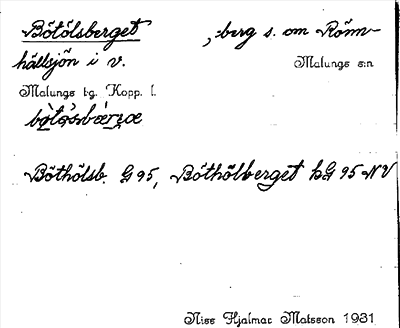 Bötölsberget, berg s. om Rönn-
hällsjön i v. Malungs sn
Malungs tg. Kopp. l.
Böthölsb. G 95, Böthölberget hG 95 NV
Niss Hjalmar Matsson 1931